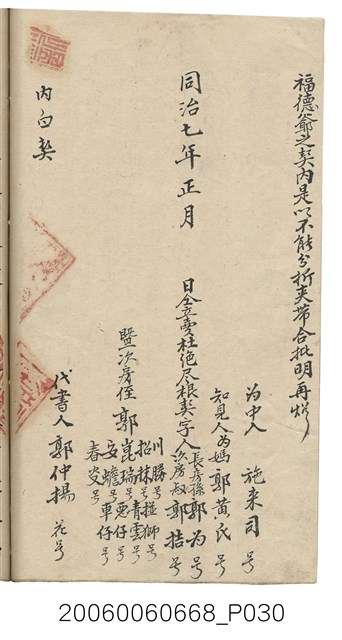 福德爺之契內是以不能分折夾帶合批明再炤
為中人 施来司 号
知見人為媽 郭黃氏 号
同治七年正月 日仝立賣杜絕尽根契字人 長房孫 郭為 号
次房叔 郭拮 号
暨次房侄 郭
川勝 号
招 号
抹 号
崑瑞 号 青雲 号
安蟾 号
春 号 車仔 号
代書人 郭仲揚 花号
內白契
20060060668_P030